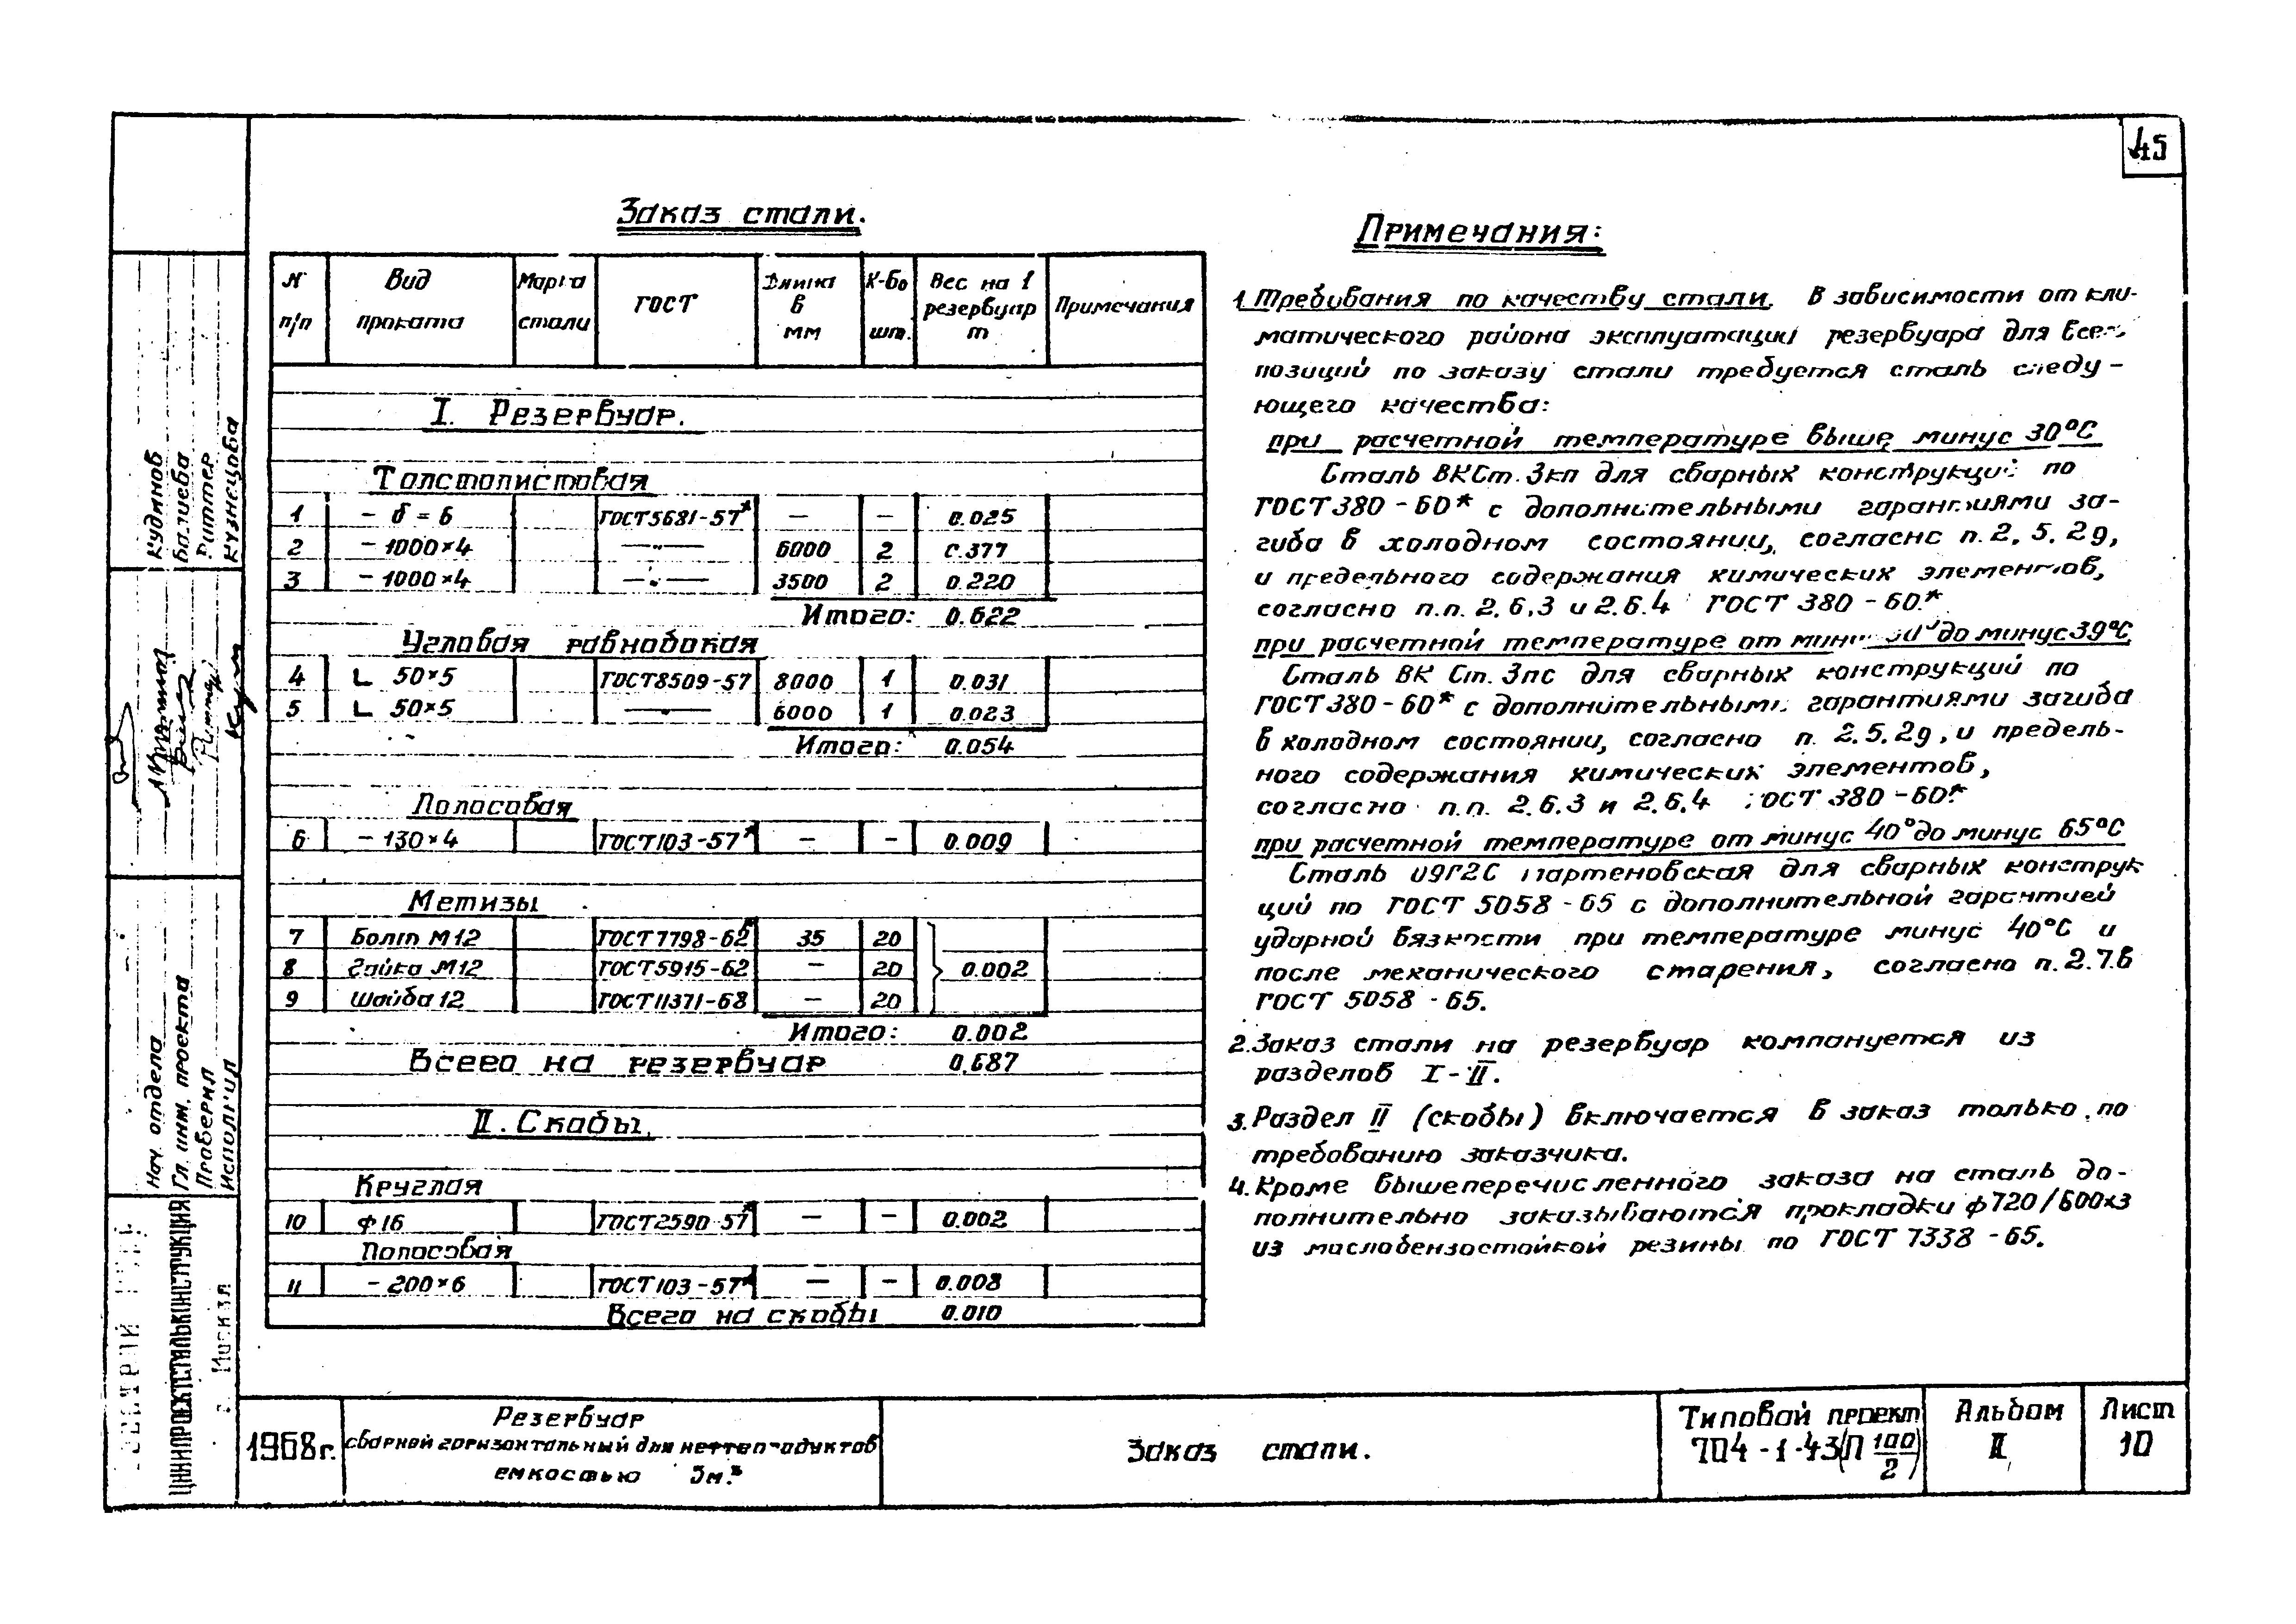 45
Заказ стали.
N п/п | Вид проката | Марка стали | ГОСТ | Длина в мм | К-во шт. | Вес на 1 резервуар т | Примечания
I. Резервуар.
Толстолистовая
1 – δ = 6 ГОСТ 5681-57* — — 0.025
2 – 1000×4 —"— 6000 2 0.377
3 – 1000×4 —"— 3500 2 0.220
Итого: 0.622
Угловая равнобокая
4 L 50×5 ГОСТ 8509-57 8000 1 0.031
5 L 50×5 —"— 6000 1 0.023
Итого: 0.054
Полосовая
6 – 130×4 ГОСТ 103-57* — – 0.009
Метизы
7 Болт М12 ГОСТ 7798-62* 35 20
8 Гайка М12 ГОСТ 5915-62 — 20 } 0.002
9 Шайба 12 ГОСТ 11371-68 — 20
Итого: 0.002
Всего на резервуар 0.687
II. Скобы.
Круглая
10 ф16 ГОСТ 2590-57* — – 0.002
Полосовая
11 – 200×6 ГОСТ 103-57* — – 0.008
Всего на скобы 0.010
Примечания:
1. Требования по качеству стали. В зависимости от кли-
матического района эксплуатации резервуара для всех
позиций по заказу стали требуется сталь следу-
ющего качества:
при расчетной температуре выше минус 30°С
Сталь ВКСт.3кп для сварных конструкций по
ГОСТ 380-60* с дополнительными гарантиями за-
гиба в холодном состоянии, согласно п. 2.5.2д,
и предельного содержания химических элементов,
согласно п.п. 2.6.3 и 2.6.4 ГОСТ 380-60.*
при расчетной температуре от минус 30° до минус 39°С
Сталь ВК Ст.3пс для сварных конструкций по
ГОСТ 380-60* с дополнительными гарантиями загиба
в холодном состоянии, согласно п. 2.5.2д, и предель-
ного содержания химических элементов,
согласно п.п. 2.6.3 и 2.6.4 ГОСТ 380-60.*
при расчетной температуре от минус 40° до минус 65°С
Сталь 09Г2С мартеновская для сварных конструк
ций по ГОСТ 5058-65 с дополнительной гарантией
ударной вязкости при температуре минус 40°С и
после механического старения, согласно п. 2.7.в
ГОСТ 5058-65.
2. Заказ стали на резервуар компануется из
разделов I-II.
3. Раздел II (скобы) включается в заказ только по
требованию заказчика.
4. Кроме вышеперечисленного заказа на сталь до-
полнительно заказываются прокладки ф720/600×3
из маслобензостойкой резины по ГОСТ 7338-65.
Кудинов
Балиева
Риттер
Кузнецова
Нач. отдела
Гл. инж. проекта
Проверил
Исполнил
ЦНИИПРОЕКТСТАЛЬКОНСТРУКЦИЯ
г. Москва
1968г.
Резервуар
сварной горизонтальный для нефтепродуктов
емкостью м.³
Заказ стали.
Типовой проект
704-1-43(П 100/2)
Альбом
II
Лист
10